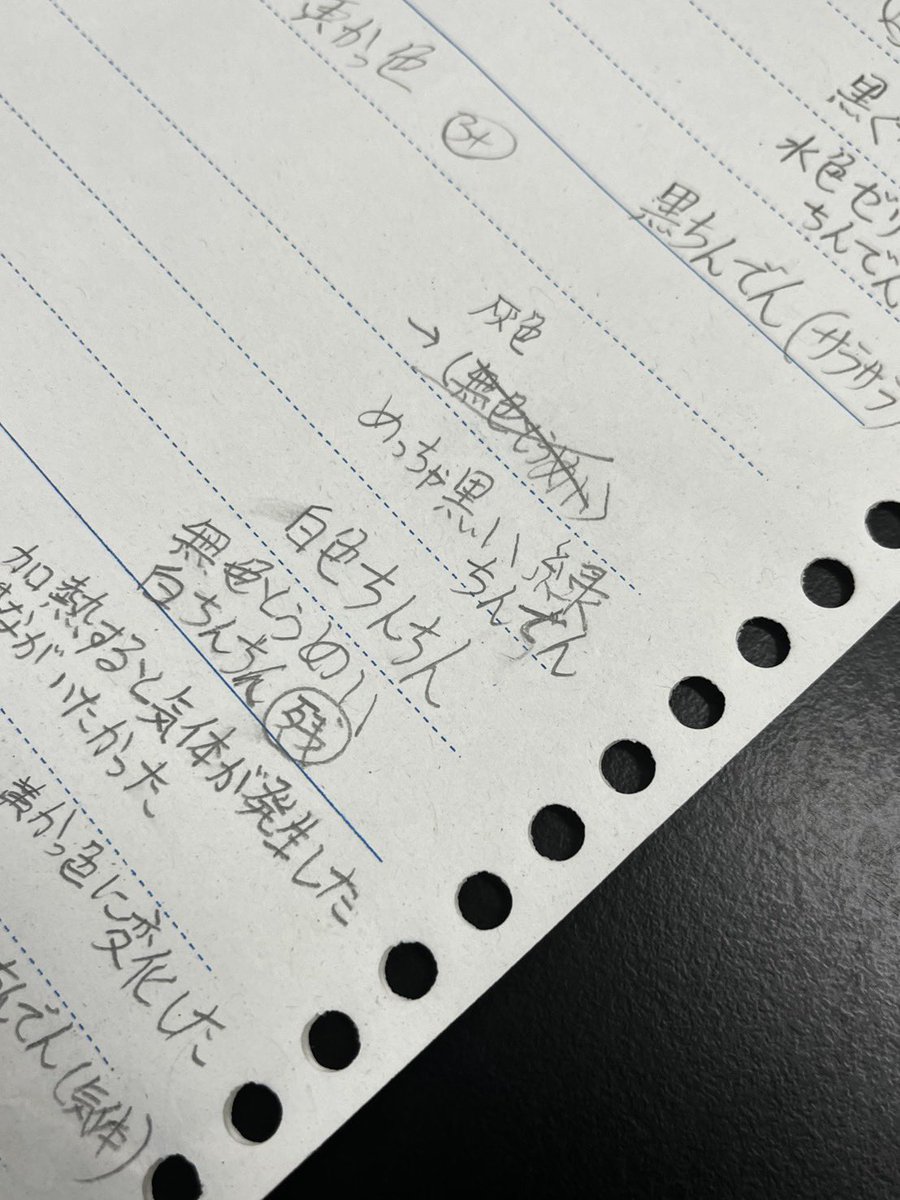 黒く
水色ゼリ
ちんでん
黒ちんでん(サラサラ
黄かっ色
3+
灰色
→(無色とうめい)
めっちゃ黒い緑
ちんでん
白色ちんちん
無色とうめい
白ちんちん 残
加熱すると気体が発生した
はながいたかった
黄かっ色に変化した
んでん(気体)